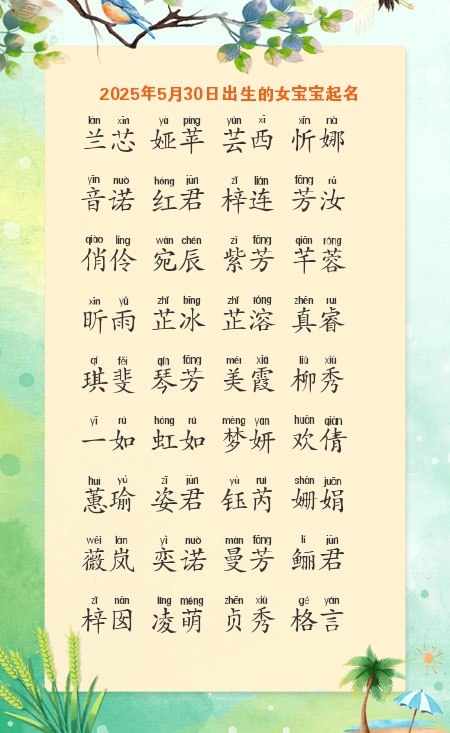 2025年5月30日出生的女宝宝起名
lán xīn yà píng yún xī xīn nà
兰芯 娅苹 芸西 忻娜
yīn nuò hóng jūn zǐ lián fāng rǔ
音诺 红君 梓连 芳汝
qiào líng wǎn chén zǐ fāng qiān róng
俏伶 宛辰 紫芳 芊蓉
xīn yǔ zhǐ bīng zhǐ róng zhēn ruì
昕雨 芷冰 芷溶 真睿
qí fěi qín fāng měi xiá liǔ xiù
琪斐 琴芳 美霞 柳秀
yī rú hóng rú mèng yán huān qiàn
一如 虹如 梦妍 欢倩
huì yú zī jūn yù ruì shān juān
蕙瑜 姿君 钰芮 姗娟
wēi lán yì nuò màn fāng lí jūn
薇岚 奕诺 曼芳 鲡君
zǐ nān líng méng zhēn xiù gé yán
梓囡 凌萌 贞秀 格言